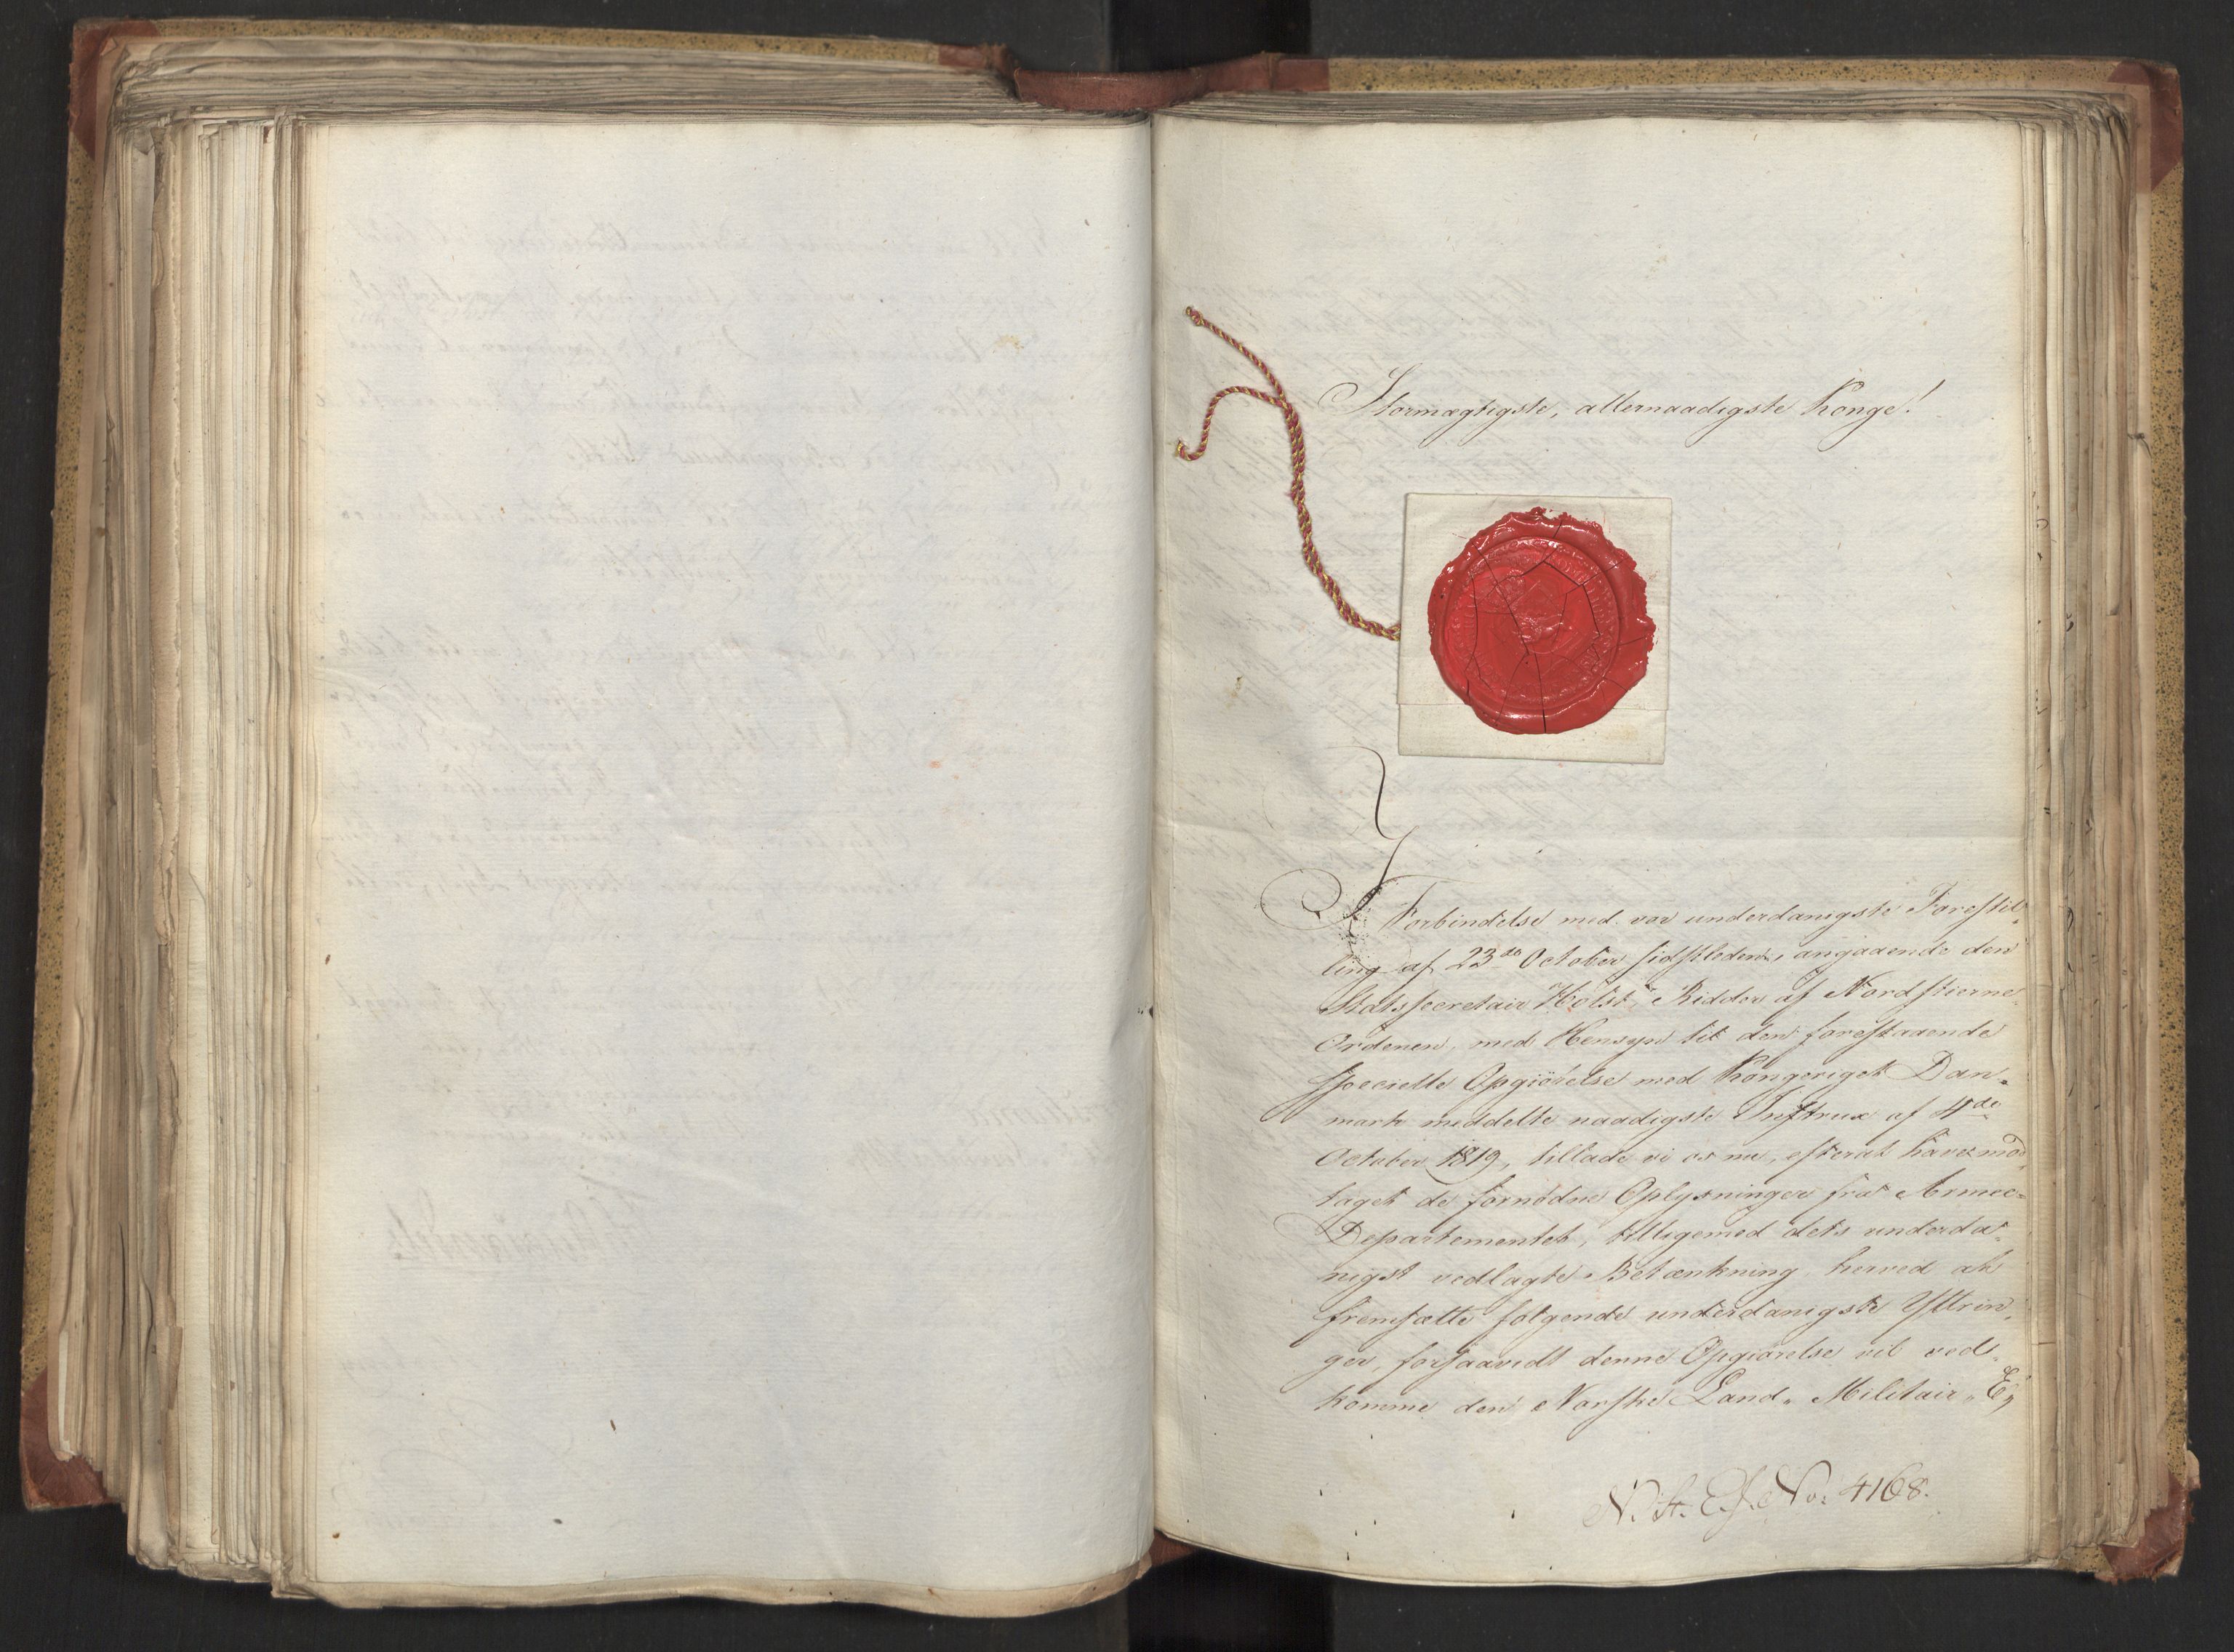 Stormægtigste, allernaadigste Konge!
I Forbindelse med vor underdanigste Forestil„
ling af 23de October sidstleden, angaaende den
Statssecretair Holst, Ridder af Nordstierne„
Ordenen, med Hensyn til den forestaaende
specielle Opgiørelse med Kongeriget Dan„
mark meddelte naadigste Instrux af 4de
October 1819, tillade vi os nu, efterat have mod„
taget de fornødne Oplysninger fra Armee„
Departementet, tilligemed dets underda„
nigst vedlagte Betænkning, herved at
fremsætte følgende underdanigste Yttrin„
ger, forsaavidt denne Opgiørelse vil ved„
komme den Norske Land„ Militair„ E„
N. St. Ex. No: 4168.